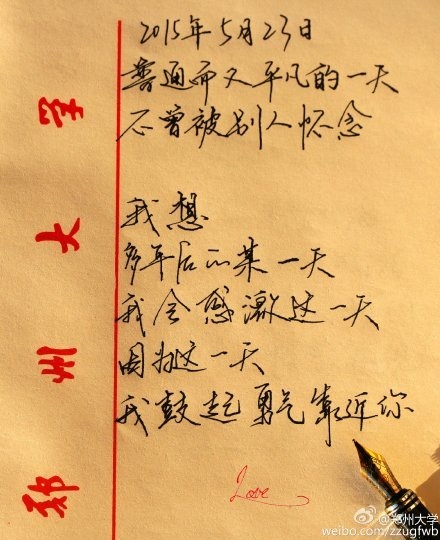 2015年5月23日
普通而又平凡的一天
不曾被别人怀念
我想
多年后的某一天
我会感激这一天
因为这一天
我鼓起勇气靠近你
Love
郑州大学
@郑州大学
weibo.com/zzugfwb